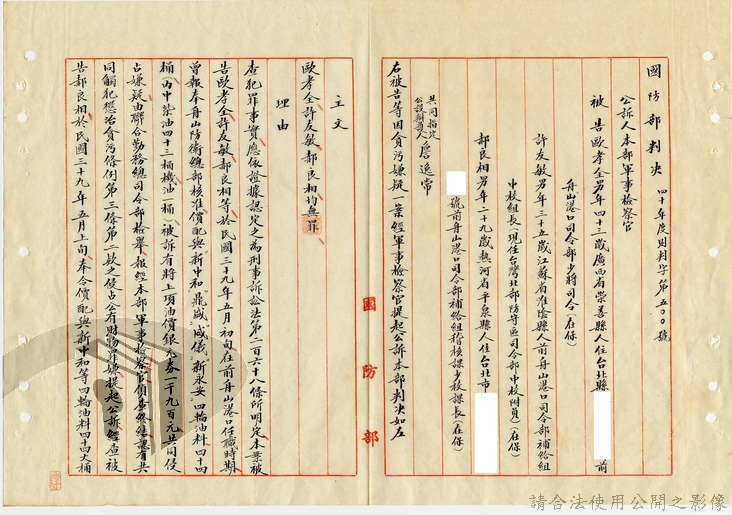 國防部判決 四十年度則判字第五〇〇號
公訴人本部軍事檢察官
被告歐孝全男年四十三歲廣西省崇善縣人住台北縣 前
舟山港口司令部少將司令(在保)
許友敏男年三十五歲江蘇省淮陰縣人前舟山港口司令部補給組
中校組長(現任台灣北部防守區司令部中校附員)(在保)
部良相男年二十九歲熱河省平泉縣人住台北市
號前舟山港口司令部補給組稽核課少校課長(在保)
共同指定公設辯護人詹逸常
右被告等因貪污嫌疑一案經軍事檢察官提起公訴本部判決如左
國防部
主文
歐孝全許友敏部良相均無罪
理由
查犯罪事實應依證據認定之為刑事訴訟法第二百六十八條所明定本案被
告歐孝全許友敏部良相等於民國三十九年五月初旬在前舟山港口任職時期
曾報奉舟山防衛總部核准價配與新中和鼎盛威儀新永安四輪油料四十四
桶(內中柴油四十三桶機油一桶)被訴有將上項油價銀元券二千九百元共同侵
占嫌疑由聯合勤務總司令部檢舉報經本部軍事檢察官偵查終結認有共
同觸犯懲治貪污條例第三條第二款之侵占公有財物罪嫌提起公訴經查被
告部良相於民國三十九年五月上旬奉令價配與新中和等四輪油料四十四大桶
請合法使用公開之影像